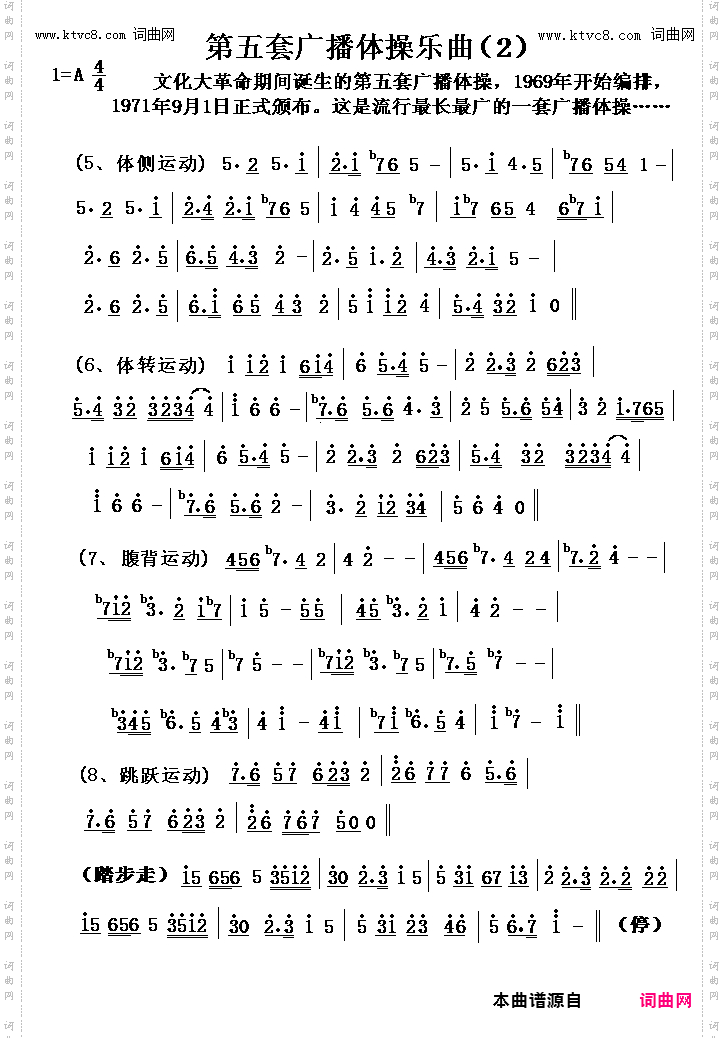 www.ktvc8.com 词曲网 www.ktvc8.com 词曲网
第五套广播体操乐曲(2)
1=A 4/4
文化大革命期间诞生的第五套广播体操，1969年开始编排，
1971年9月1日正式颁布。这是流行最长最广的一套广播体操……
(5、体侧运动) 5· 2 5· i | 2·i b765 5 - | 5· i 4·5 | b765 54 1 -|
5· 2 5· i | 2·4 2·i b765 5 | i 4 45 b7 | ib7 65 4 6b7i |
2·6 2·5 | 6·5 4·3 2 - | 2·5 i·2 | 4·3 2·i 5 - |
2·6 2·5 | 6·i 65 43 2 | 5 i i2 4 | 5·4 32 i 0 ‖
(6、体转运动) i i2 i 6i4 | 6 5·4 5 - | 2 2·3 2 623 |
5·4 32 3234 4 | i 6 6 - | b7·6 5·6 4·3 | 2 5 5·6 54 | 3 2 i·765 |
i i2 i 6i4 | 6 5·4 5 - | 2 2·3 2 623 | 5·4 32 3234 4 |
i 6 6 - | b7·6 5·6 2 - | 3· 2 i2 34 | 5 6 4 0 ‖
(7、腹背运动) 456 b7· 4 2 | 4 2 - - | 456 b7· 4 24 | b7·2 4 - - |
b7i2 b3· 2 ib7 | i 5 - 55 | 45 b3· 2 i | 4 2 - - |
b7i2 b3· b7 5 | b7 5 - - | b7i2 b3· b7 5 | b7·5 b7 - - |
b345 b6·5 4b3 | 4 i - 4i | b7i b6·5 4 | i b7 - i ‖
(8、跳跃运动) 7·6 57 623 2 | 26 77 6 5·6 |
7·6 57 623 2 | 26 767 50 0 ‖
(踏步走) i5 656 5 35i2 | 30 2·3 i 5 | 5 3i 67 i3 | 2 2·3 2·2 22 |
i5 656 5 35i2 | 30 2·3 i 5 | 5 3i 23 46 | 5 6·7 i - ‖ (停)
本曲谱源自 词曲网